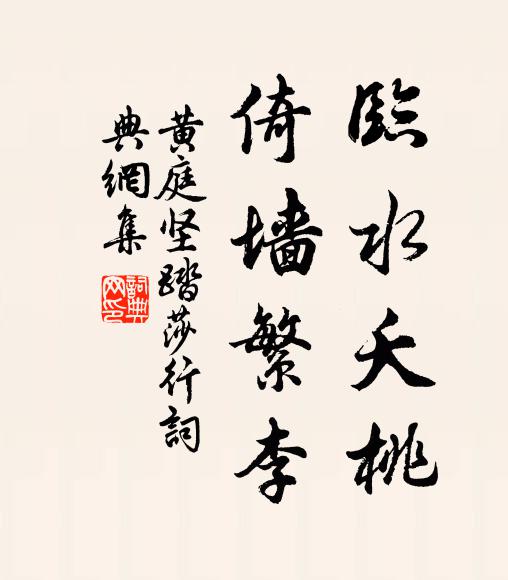 臨水夭桃
倚墙繁李
黄庭坚踏莎行詞
典網集
詞典
网印